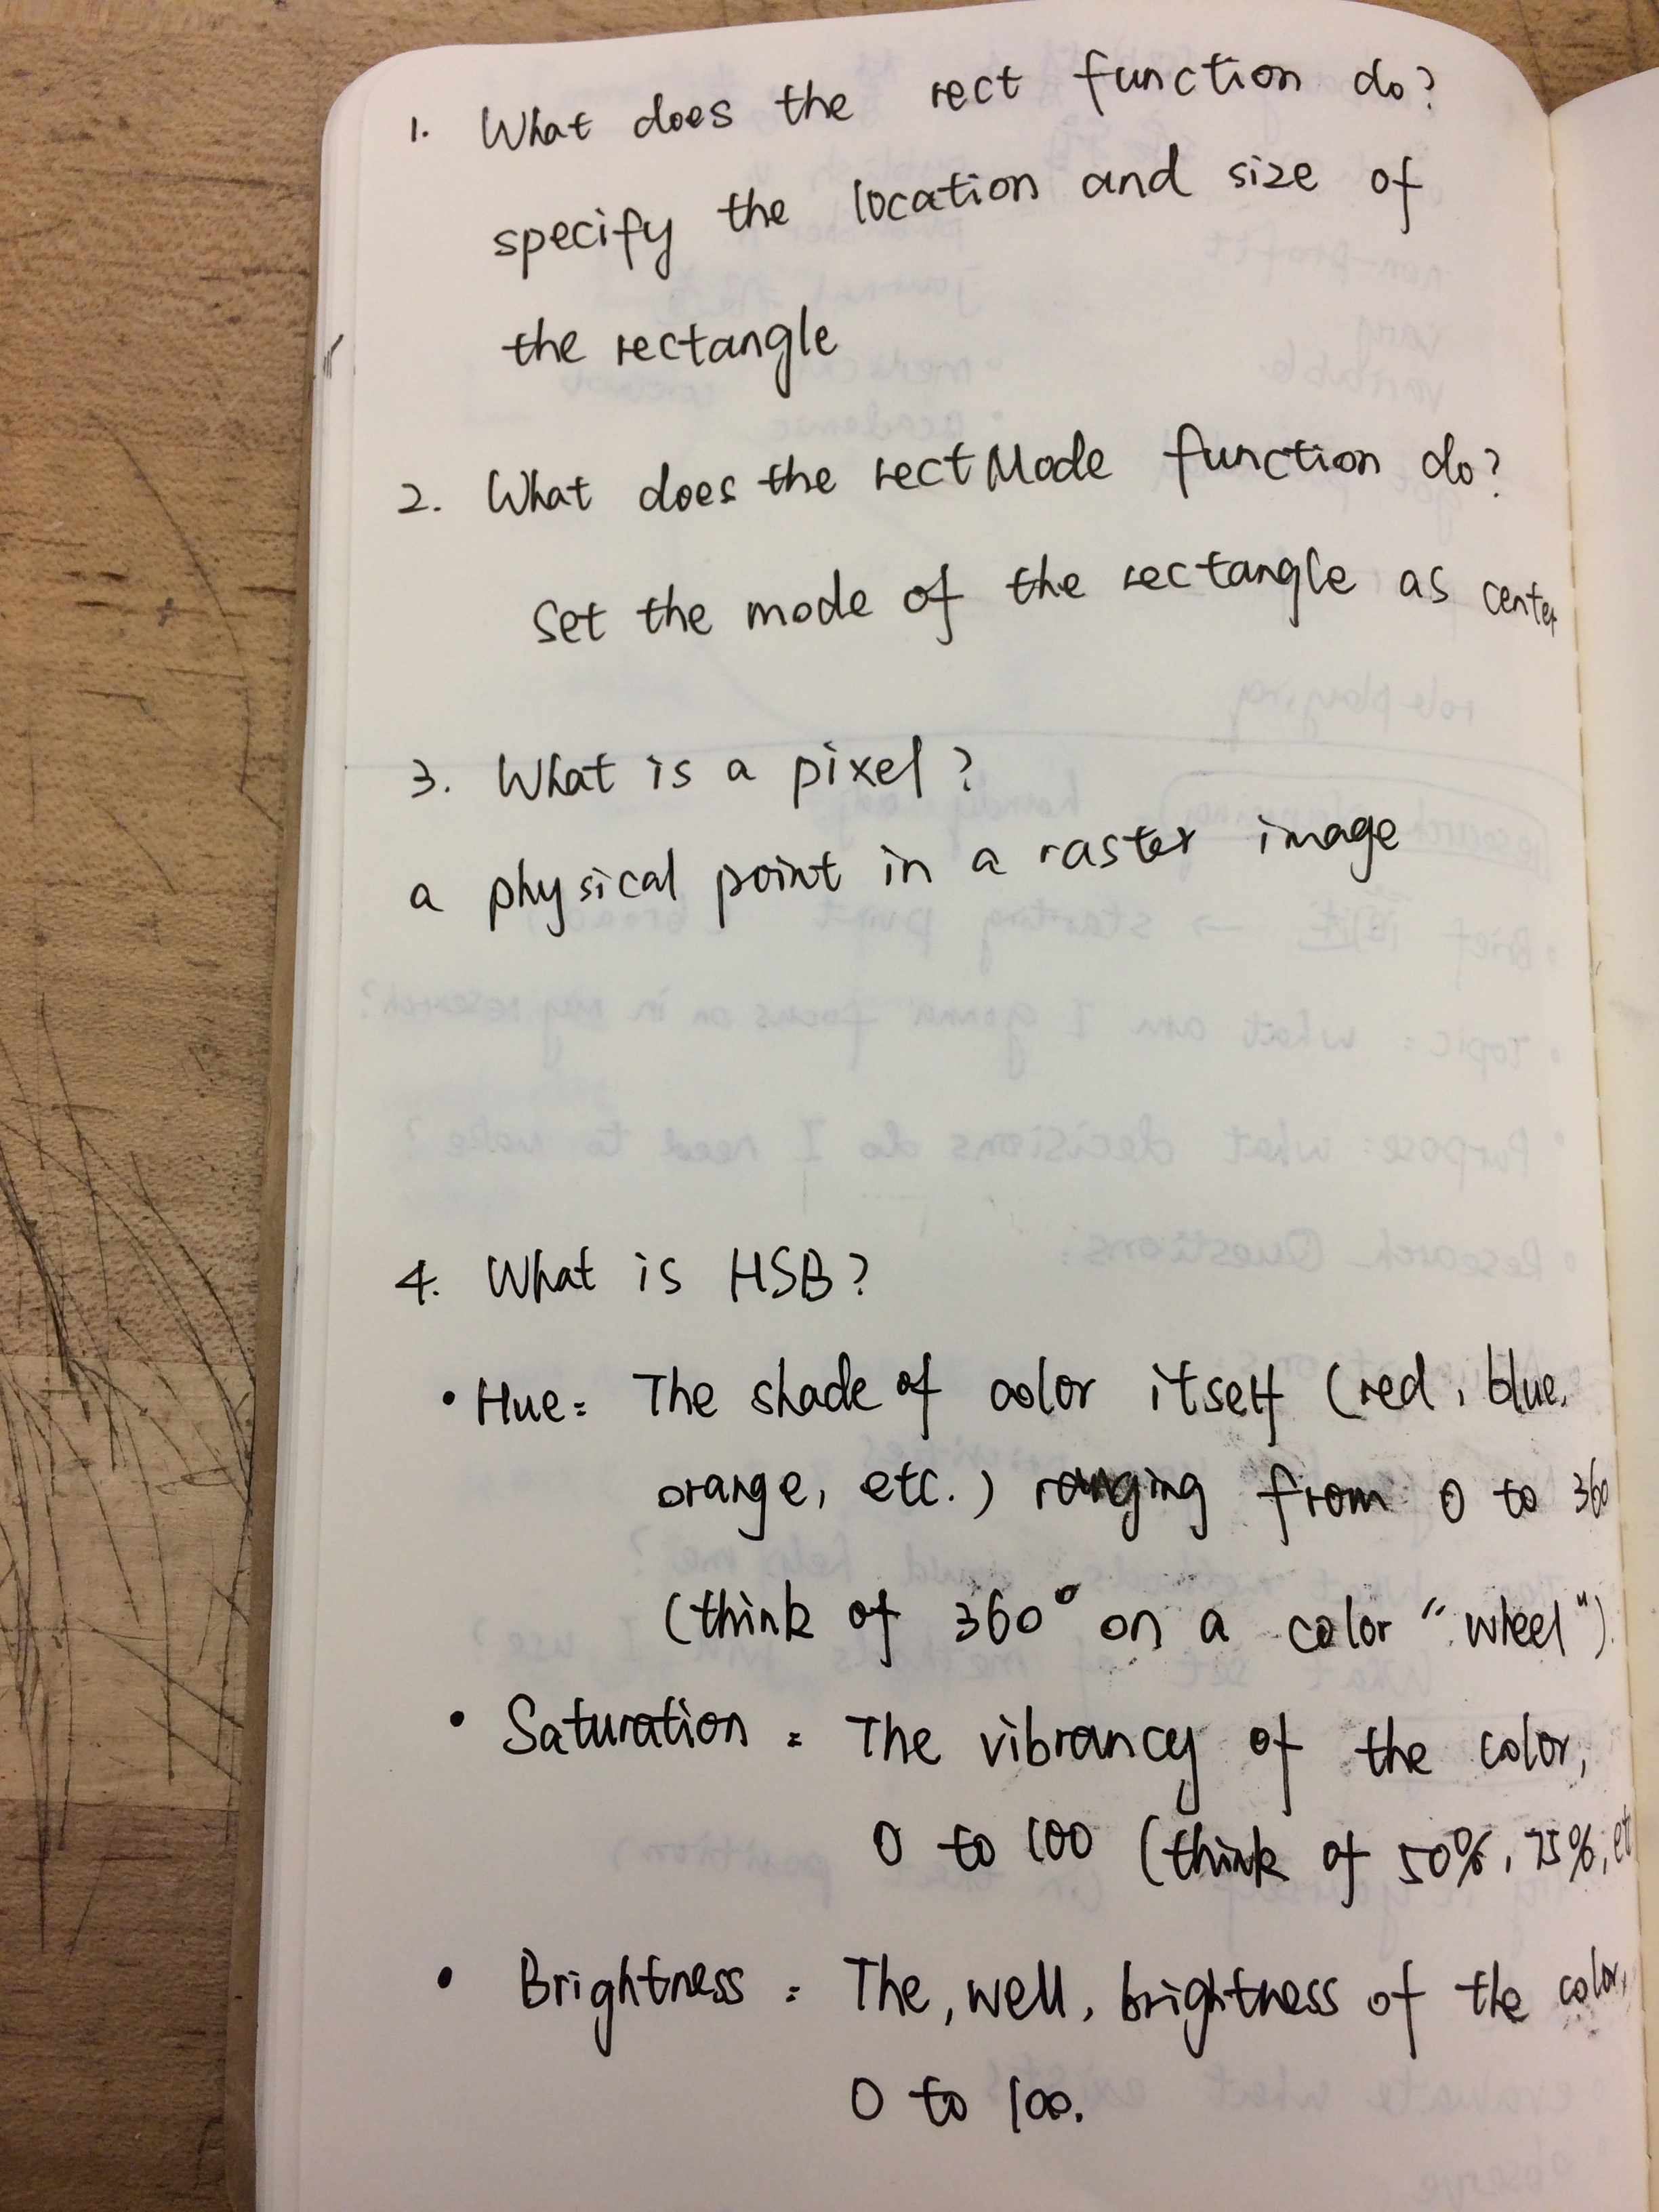 1. What does the rect function do?
specify the location and size of
the rectangle
2. What does the rectMode function do?
Set the mode of the rectangle as center
3. What is a pixel?
a physical point in a raster image
4. What is HSB?
• Hue: The shade of color itself (red, blue,
orange, etc.) ranging from 0 to 360
(think of 360° on a color "wheel").
• Saturation: The vibrancy of the color,
0 to 100 (think of 50%, 75%, et
• Brightness: The, well, brightness of the color,
0 to 100.